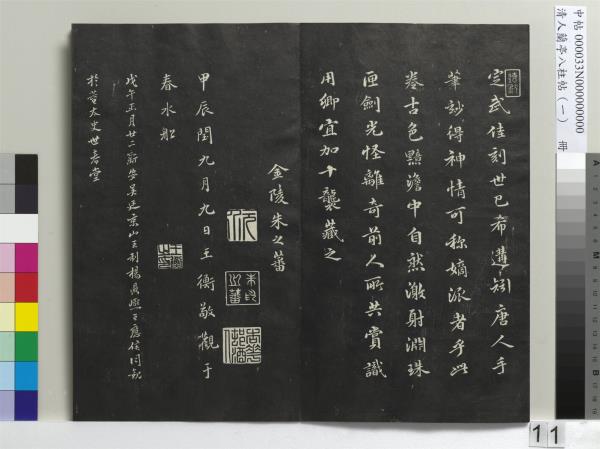 定武佳刻世已希遘矧唐人手
摹鈔得神情可称嫡派者乎此
卷古色黯澹中自然激射淵珠
匣劍光怪離奇前人所共賞識
用卿宜加十襲藏之
金陵朱之蕃
甲辰閏九月九日王衡敬觀于
春水船
戊午正月廿二新安吳廷京山王制楊鼎熙王應侯同觀
於董太史世春堂
中帖 000033N000000000
清人蘭亭八柱帖(一) 冊
11